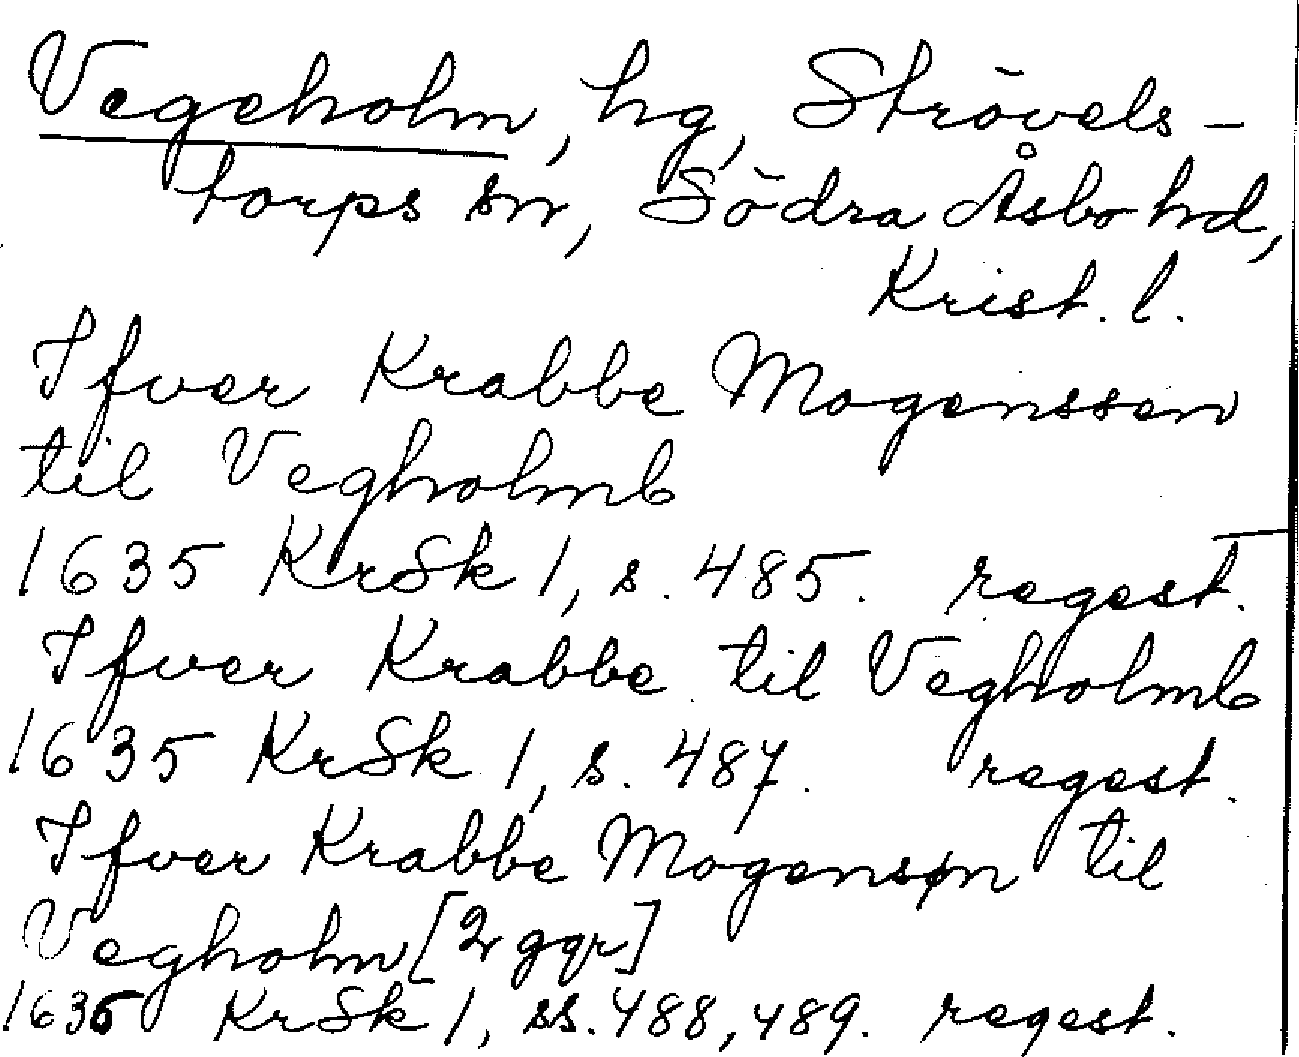 Vegeholm, hg, Strövels-
torps sn, Södra Åsbo hd,
Krist. l.
Ifver Krabbe Mogenssen
til Vegholmb
1635 KrSk 1, s. 485. regest.
Ifver Krabbe til Vegholmb
1635 KrSk 1, s. 487. regest.
Ifver Krabbe Mogensøn til
Vegholm [2 ggr]
1635 KrSk 1, ss. 488, 489. regest.